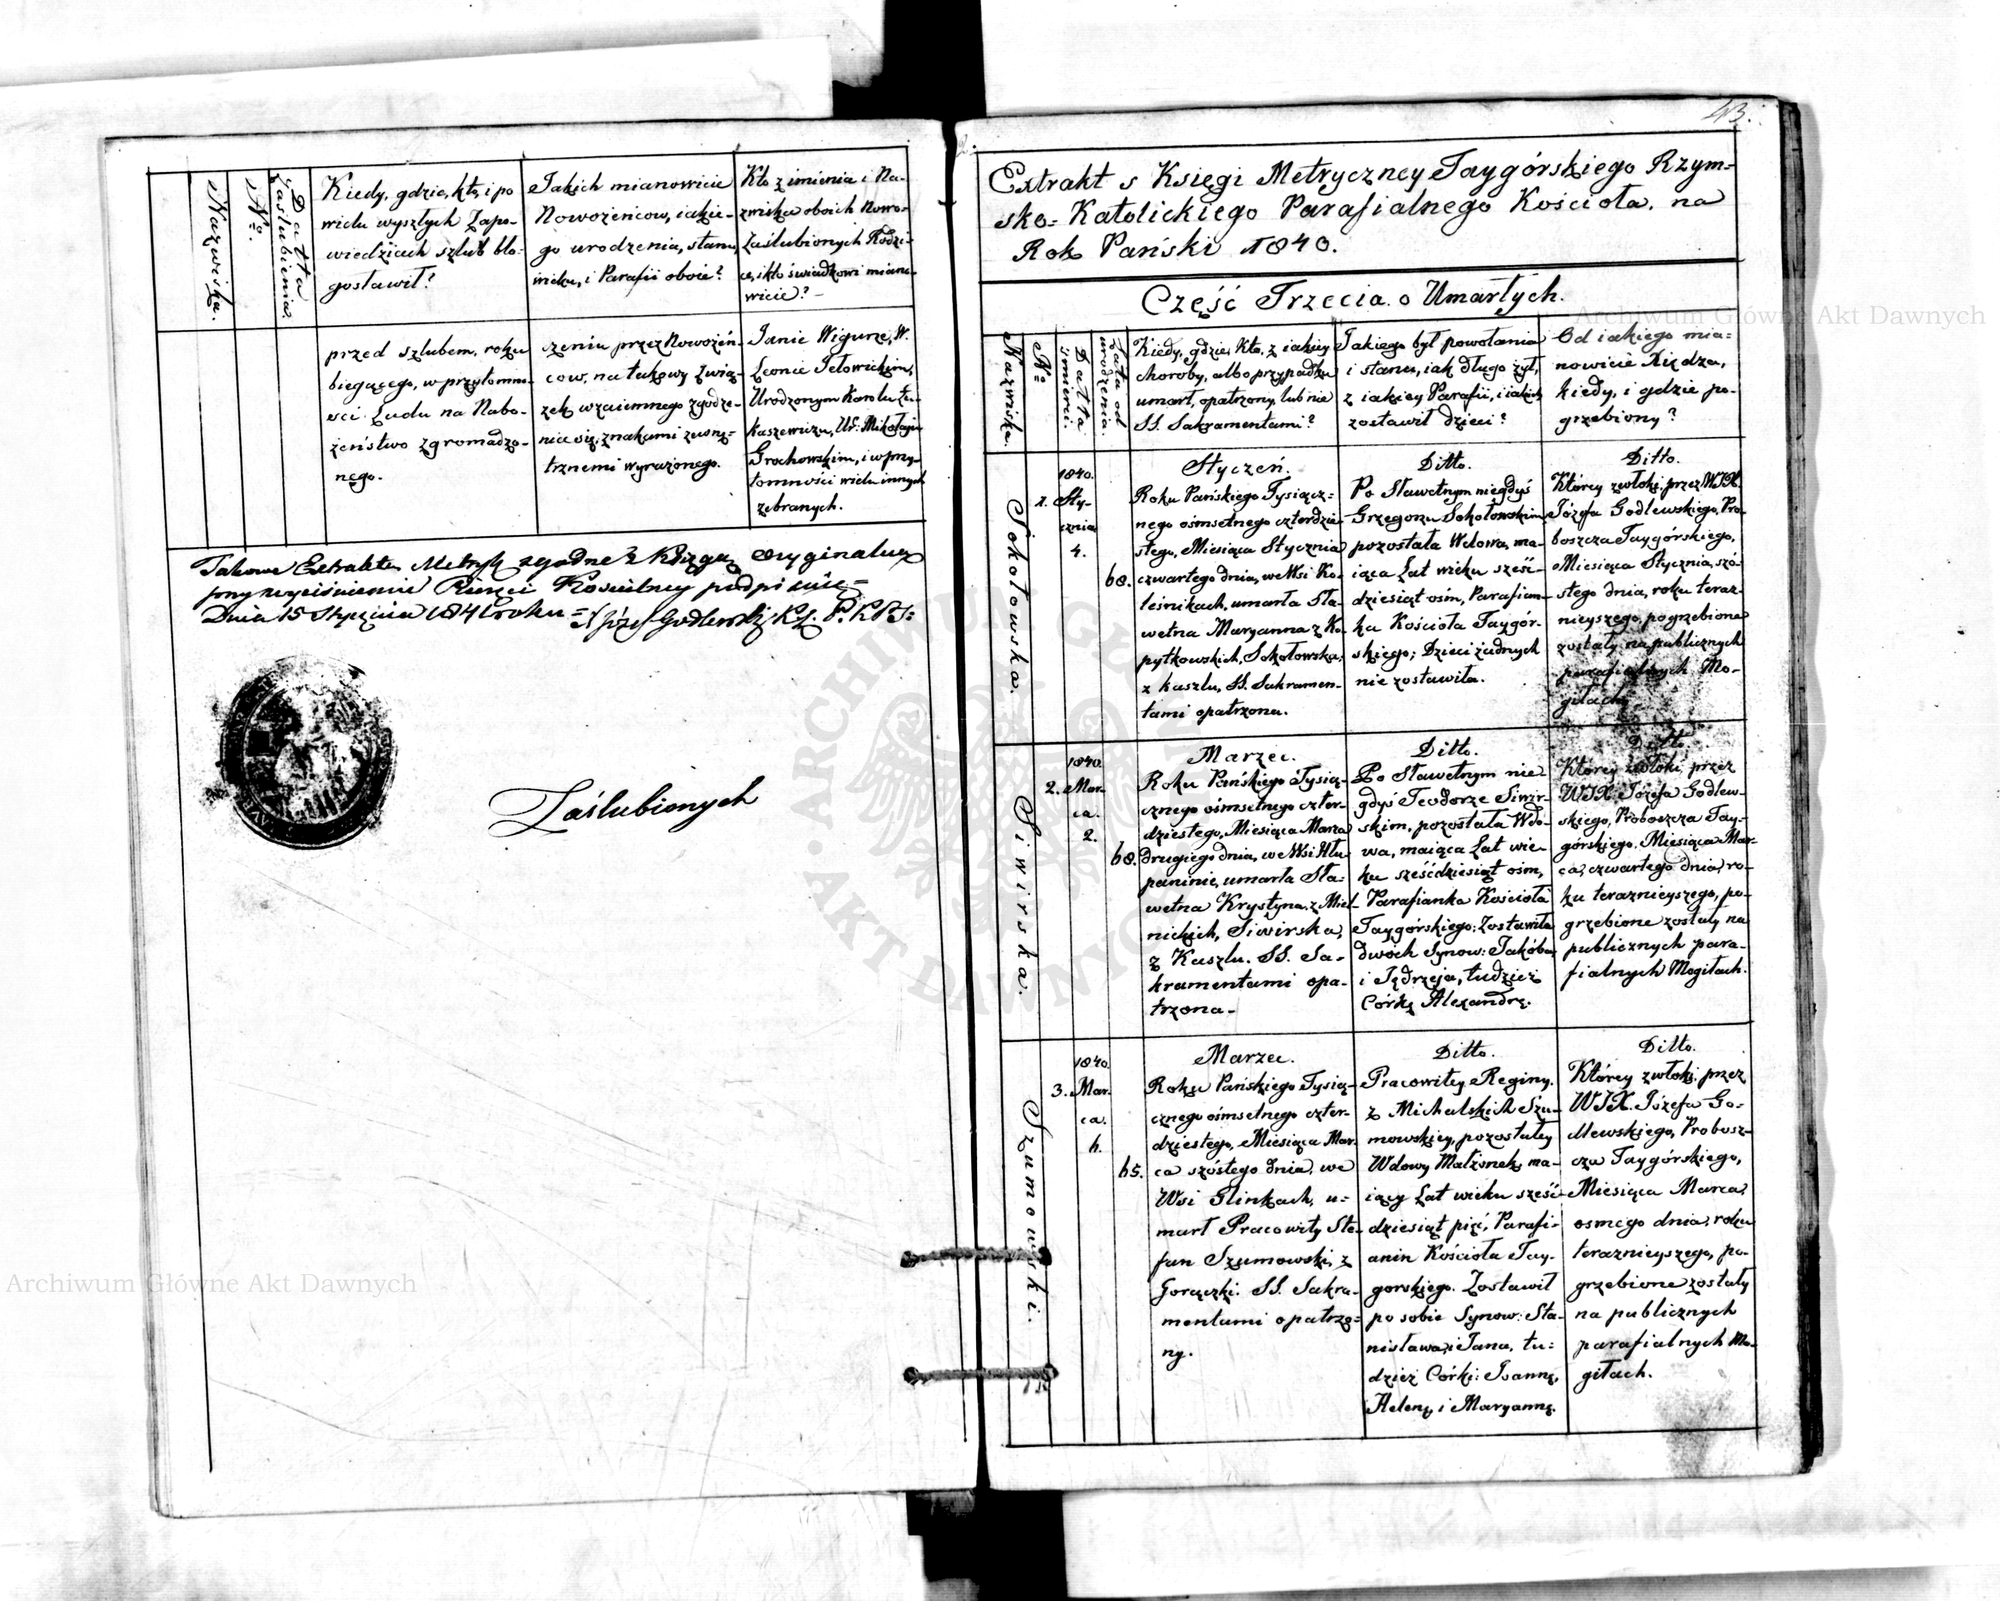 Nazwiska.
No.
Datta Zaślubienia.
Kiedy, gdzie, kto, i po
wielu wyszłych Zapo-
wiedziach szlub bło-
gosławił?
Jakich mianowicie
Nowożeńcow, iakie-
go urodzenia, stanu,
wieku, i Parafii oboie?
Kto z imienia i Na-
zwiska oboich Nowo-
Zaślubionych Rodzi-
ce, i kto świadkowi miano-
wicie?-
przed szlubem, roku
biegącego, w przytomno-
ści Ludu na Nabo-
żeństwo zgromadzo-
nego.
szeniu przez Nowożeń-
cow, na takowy Zwią-
zek wzaiemnego zgodze-
nia się, znakami zewnę-
trznemi wyrażonego.
Janie Wigurze, W.
Leonie Jełowickim,
Urodzonym Karolu Łu-
kaszewiczu, Ur: Mikołaju
Grochowskim, i w przy-
tomności wielu innych
zebranych.
Takowe Extrakta Metryk zgodne z Księgą oryginalną
przy wyciśnieniu Pieczęci Kościelney podpisuię=
Dnia 15 Stycznia 1841 roku = X Józef Godlewski
Zaślubionych
43.
Extrakt s Księgi Metryczney Taygórskiego Rzym=
sko=Katolickiego Parafialnego Kościoła, na
Rok Pański 1840.
Część Trzecia o Umarłych.
Nazwiska.
No
Datta śmierci.
Lata od urodzenia.
Kiedy, gdzie, kto, z iakiey
choroby, albo przypadku
umarł, opatrzony, lub nie
SS. Sakramentami?
Jakiego był powołania
i stanu, iak długo żył,
z iakiey Parafii, i iakich
zostawił dzieci?
Od iakiego mia-
nowicie Xiędza,
kiedy, i gdzie po-
grzebiony?
Sokołowska.
1.
1840.
Sty-
cznia
4.
68.
Styczeń.
Roku Pańskiego Tysiącz=
nego ośmsetnego czterdzie-
stego, Miesiąca Stycznia
czwartego dnia, we Wsi Ko-
leśnikach, umarła Sła-
wetna Maryanna z Ko-
pytkowskich, Sokołowska,
z kaszlu, SS. Sakramen-
tami opatrzona.
Ditto.
Po Sławetnym niegdyś
Grzegorzu Sokołowskim
pozostała Wdowa, ma-
iąca Lat wieku sześć-
dziesiąt ośm, Parafian-
ka Kościoła Taygór-
skiego; Dzieci żadnych
nie zostawiła.
Ditto.
Którey zwłoki, przez WJX.
Józefa Godlewskiego, Pro-
boszcza Taygórskiego,
Miesiąca Stycznia, szó-
stego dnia, roku teraz-
nieyszego, pogrzebione
zostały na publicznych
parafialnych Mo-
giłach.
Siwirska.
2.
1840.
Mar-
ca.
2.
68.
Marzec.
Roku Pańskiego Tysią-
cznego ośmsetnego czter-
dziestego, Miesiąca Marca
drugiego dnia, we Wsi Hłu-
paninie, umarła Sła-
wetna Krystyna z Miel-
nickich, Siwirska,
z Kaszlu. SS. Sa-
kramentami opa-
trzona-
Ditto.
Po Sławetnym nie
gdyś Teodorze Siwir-
skim, pozostała Wdo-
wa, maiąca Lat wie-
ku sześćdziesiąt ośm,
Parafianka Kościoła
Taygórskiego; Zostawiła
dwóch Synow: Jakóba,
i Jędrzeja, tudzież
Córkę Alexandrę.
Ditto.
Którey zwłoki, przez
WJX. Józefa Godlew-
skiego, Proboszcza Tay-
górskiego, Miesiąca Mar-
ca, czwartego dnia, ro-
ku teraznieyszego, po-
grzebione zostały na
publicznych para-
fialnych Mogiłach.
Szumowski.
3.
1840.
Mar-
ca.
6.
65.
Marzec.
Roku Pańskiego Tysią-
cznego ośmsetnego czter-
dziestego, Miesiąca Mar-
ca szóstego dnia, we
Wsi Glinkach, u=
marł Pracowity Ste-
fan Szumowski, z
Gorączki. SS. Sakra-
mentami opatrzo=
ny.
Ditto.
Pracowitey Reginy.
z Michalskich Szu-
mowskiey, pozostałey
Wdowy Małżonek, ma-
iący Lat wieku sześć-
dziesiąt pięć, Parafi-
anin Kościoła Tay-
gorskiego. Zostawił
po sobie Synow: Sta-
nisława, i Jana, tu=
dzież Córki: Joannę,
Helenę, i Maryannę.
Ditto.
Którey zwłoki, przez
WJX. Józefa Go-
dlewskiego, Probosz-
cza Taygórskiego,
Miesiąca Marca,
osmego dnia, roku
teraznieyszego, po-
grzebione zostały
na publicznych
parafialnych Mo-
giłach.
Archiwum Główne Akt Dawnych
Archiwum Główne Akt Dawnych
ARCHIWUM GŁÓWNE AKT DAWNYCH